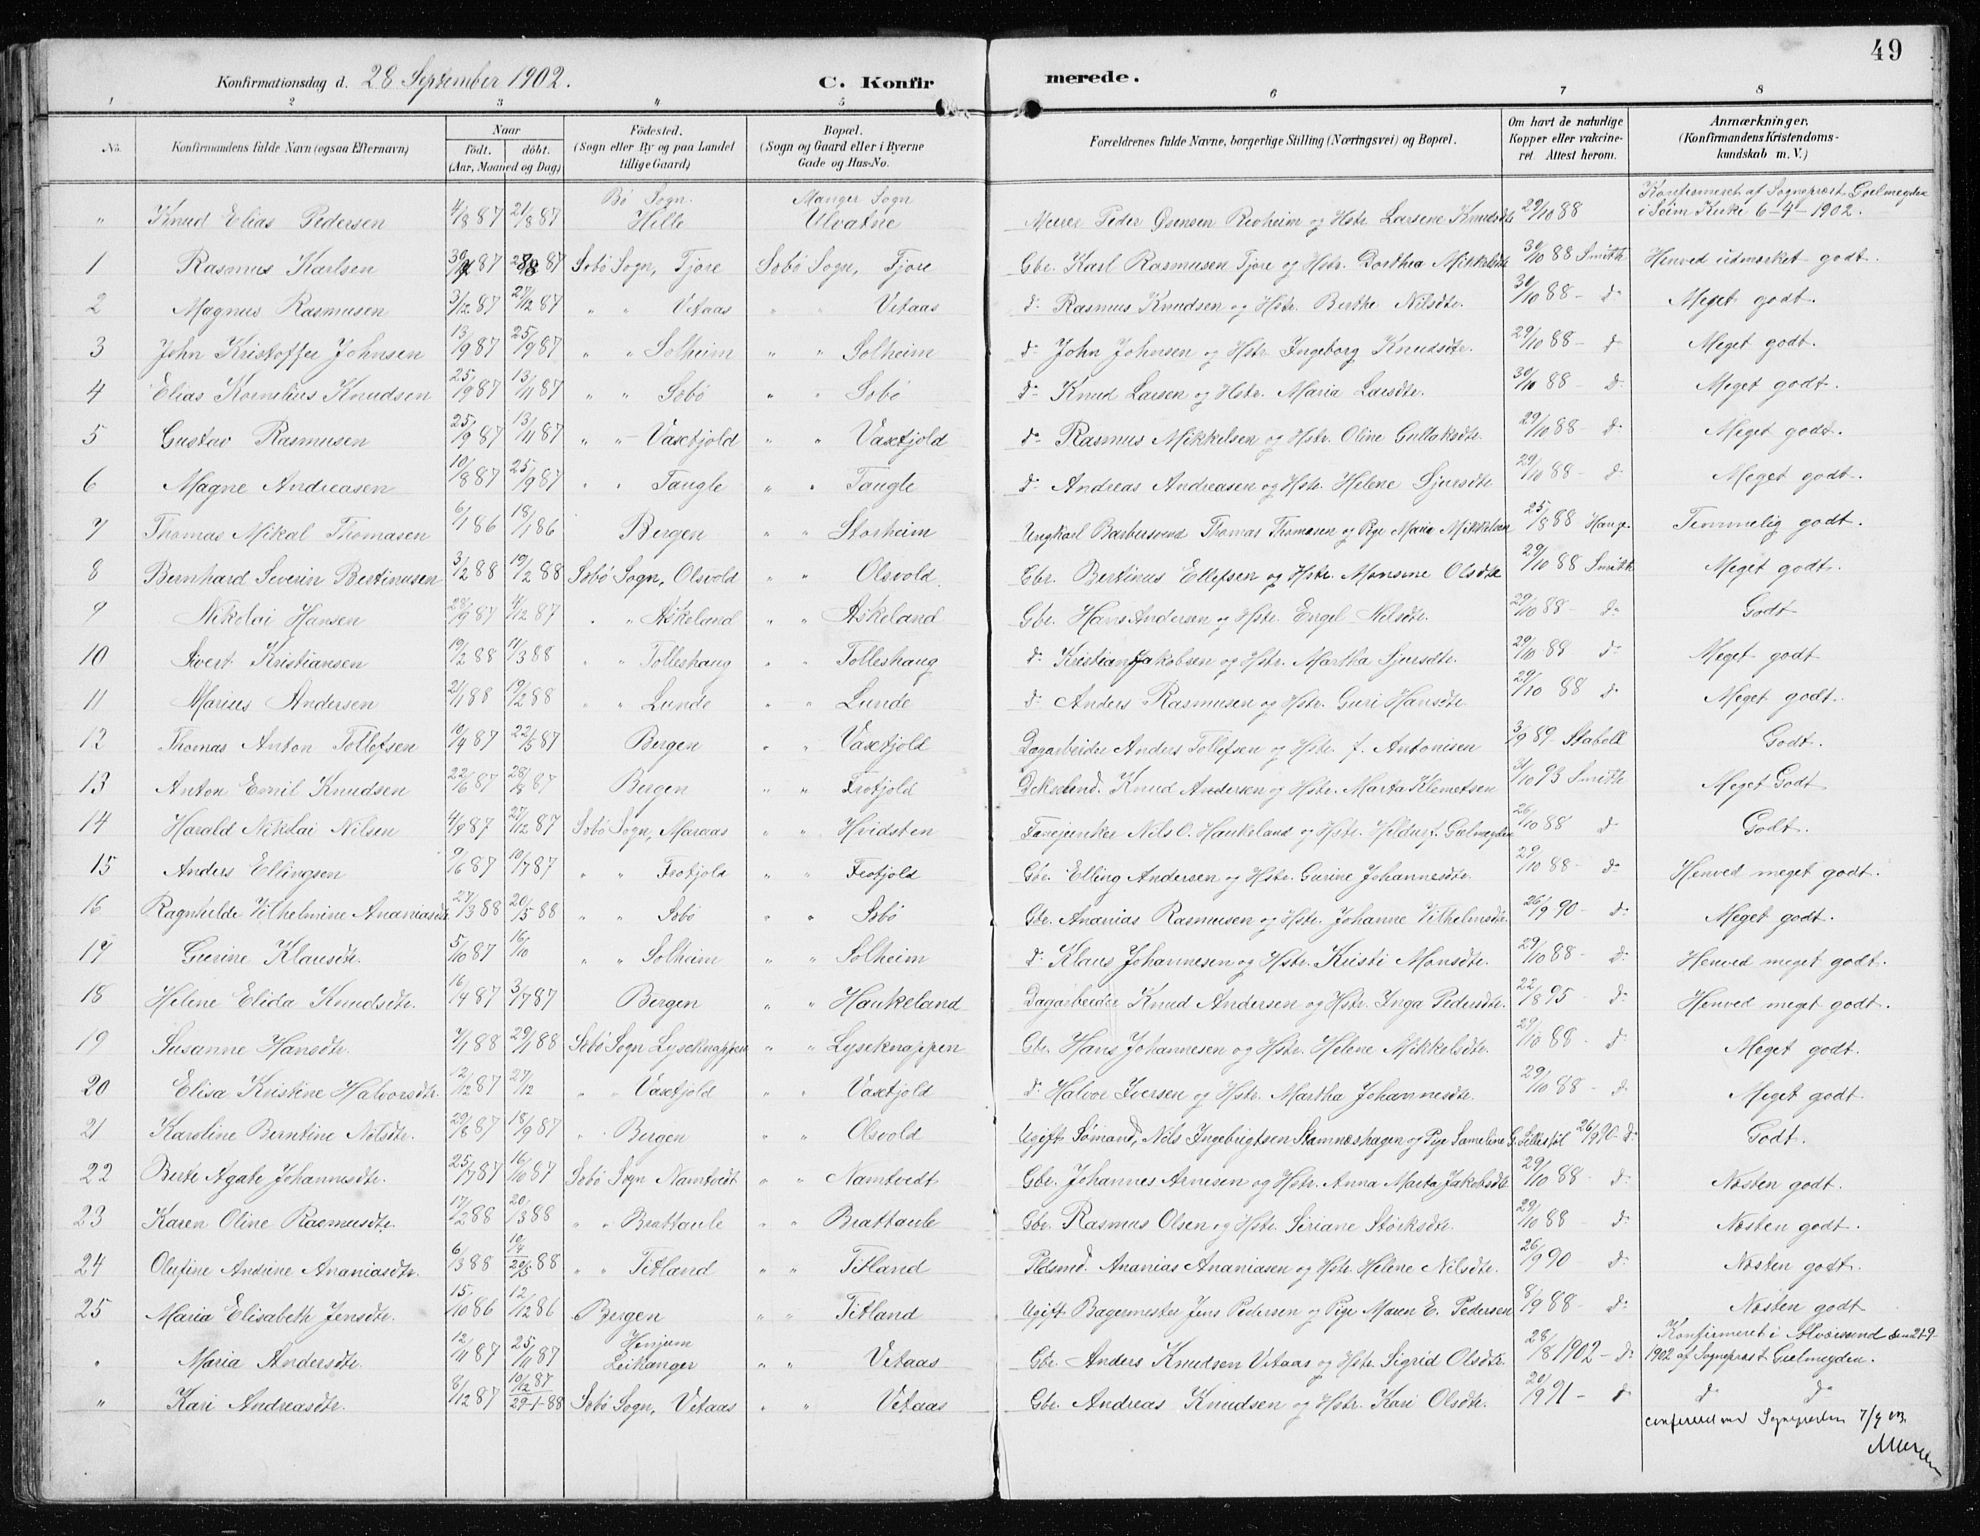 49
Konfirmationsdag d. 28 September 1902. C. Konfirmerede.
1 2 3 4 5 6 7 8
No. Konfirmandens fulde Navn (ogsaa Efternavn) Naar födt. döbt. (Aar, Maaned og Dag) Födested. (Sogn eller By og paa Landet tillige Gaard) Bopæl. (Sogn og Gaard eller i Byerne Gade og Hus-No. Forældrenes fulde Navne, borgerlige Stilling (Næringsvei) og Bopæl. Om havt de naturlige Kopper eller vakcineret. Attest herom. Anmærkninger. (Konfirmandens Kristendomskundskab m. V.)
" Knud Elias Pedersen 4/8 87 21/8 87 Bö Sogn. Hille Manger Sogn Ulvatne Murer Peder Revheim og Hstr. Larsine Knudsdtr 29/10 88 Konfirmeret af Sognepræst Gjelmegden i Seim Kirke 6-4-1902.
1 Rasmus Karlsen 87 87 Sæbö Sogn, Fjore Sæbö Sogn, Fjore Gbr. Karl Rasmusen Fjore og Hstr. Dorthea Mikkelsdtr 30/10 88 Smith Henved udmærket godt.
2 Magnus Rasmusen 3/12 87 27/12 87 " " Vetaas " " Vetaas do Rasmus Knudsen og Hstr. Berthe Nilsdtr. 30/10 88 - do Meget godt.
3 John Kristoffer Johnsen 13/9 87 25/9 87 " " Solheim " " Solheim do John Johnsen og Hstr. Ingeborg Knudsdtr. 29/10 88 - do Meget godt.
4 Elias Kornelius Knudsen 25/9 87 13/11 87 " " Sæbö " " Sæbö do Knud Larsen og Hstr. Maria Larsdtr. 30/10 88 - do Meget godt.
5 Gustav Rasmusen 25/9 87 13/11 87 " " Vaxtjold " " Vaxtjold do Rasmus Mikkelsen og Hstr. Oline Gullaksdtr. 29/10 88 - do Meget godt.
6 Magne Andreasen 10/8 87 25/9 87 " " Taugle " " Taugle do Andreas Andreasen og Hstr. Helene Sjursdtr 29/10 88 - do Meget godt.
7 Thomas Mikal Thomasen 6/1 86 18/1 86 Bergen " " Storheim Ungkarl Barbersvend Thomas Thomasen og Pige Maria Mikkelsen 25/8 88 Hauge Temmelig godt.
8 Bernhard Severin Bertinusen 3/2 88 19/2 88 Sæbö Sogn, Olsvold " " Olsvold Gbr. Bertinus Ellefsen og Hstr. Monsine Olsdtr 29/10 88 Smith Meget godt.
9 Nikolai Hansen 28/9 87 4/12 87 " " Askeland " " Askeland Gbr. Hans Andersen og Hstr. Engel Nilsdtr. 29/10 88 - do Godt
10 Sivert Kristiansen 19/2 88 11/3 88 " " Tolleshaug " " Tolleshaug do Kristian Jakobsen og Hstr. Martha Sjursdtr. 29/10 88 do Meget godt
11 Marius Andersen 21/1 88 19/2 88 " " Lunde " " Lunde do Anders Rasmusen og Hstr. Guri Hansdtr. 29/10 88 do Meget godt.
12 Thomas Anton Tollefsen 87 22/5 87 Bergen " " Vaxtjold Dagarbeider Anders Tollefsen og Hstr. f. Antonisen 3/9 89 Godt.
13 Anton Emil Knudsen 22/6 87 87 Bergen " " Frotjold Knud Andersen og Hstr. Marta Klemetsen 3/10 93 Smith Meget Godt
14 Harald Nikolai Nilsen 87 27/12 87 Sæbö Sogn, Maraas " " Hvidsten Nils O. Haukeland og Hstr. f. Gjelmegden 26/10 88 do Godt.
15 Anders Ellingsen 9/6 87 10/7 87 " " Frotjold " " Frotjold Gbr. Elling Andersen og Hstr. Gurine Johannesdtr. 29/10 88 - do Henved meget godt.
16 Ragnhilde Vilhelmine Ananiasdtr 27/3 88 20/5 88 " " Sæbö " " Sæbö Gbr. Ananias Rasmusen og Hstr. Johanne Vilhelmsdtr 26/9 90 - do Meget godt.
17 Gurine Klausdtr. 5/10 87 16/10 " " Solheim " " Solheim do Klaus Johannesen og Hstr. Kristi Monsdtr. 29/10 88 - do Henved meget godt.
18 Helene Elida Knudsdtr. 16/4 87 3/7 87 Bergen " " Haukeland Dagarbeider Knud Andersen og Hstr. Inga Pedersdtr. 22/8 95 - do Henved meget godt.
19 Susanne Hansdtr. 7/1 88 29/1 88 Sæbö Sogn Lyseknappen " " Lyseknappen Gbr. Hans Johannesen og Hstr. Helene Mikkelsdtr. 29/10 88 - do Meget godt.
20 Elisa Kristine Halvorsdtr. 12/12 87 27/12 " " Vaxtjold " " Vaxtjold do Halvor Iversen og Hstr. Martha Johannesdtr. 29/10 88 - do Meget godt.
21 Karoline Berntine Nilsdtr. 29/8 87 18/9 87 " Bergen " " Olsvold Ugift Sømand, Nils Ingebrigtsen Stamneshagen og Pige Sameline G. 26/9 90 - do Godt.
22 Berte Agate Johannesdtr. 25/7 87 16/10 87 Sæbö Sogn Namtvedt " " Namtvedt Gbr. Johannes Arnesen og Hstr. Anna Marta Jakobsdtr 29/10 88 - do Næsten godt.
23 Karen Oline Rasmusdtr. 17/2 88 20/3 88 " " Brattaule " " Brattaule Gbr. Rasmus Olsen og Hstr. Siriane Størksdtr. 29/10 88 do Næsten godt.
24 Olufine Andrine Ananiasdtr. 6/3 88 10/4 20/5 88 " " Titland " " Titland Pldsmd. Ananias Ananiasen og Hstr. Helene Nilsdtr. 26/9 90 do Næsten godt.
25 Maria Elisabeth Jensdtr. 15/10 86 12/12 86 Bergen " " Titland Ugift Bagermester Jens Pedersen og Pige Maren E. Pedersen 8/9 88 - do Næsten godt
" Maria Andersdtr. 12/11 87 25/11 87 Henjum Leikanger " " Vetaas Gbr. Anders Knudsen Vetaas og Hstr. Sigrid Olsdtr. 28/8 1902 - do Konfirmeret i Alversund den 21-9-1902 af Sognepræst Gjelmegden.
" Kari Andreasdtr. 8/12 87 10/12 87 29-1-88 Sæbö Sogn, Vetaas " " Vetaas Gbr. Andreas Knudsen og Hstr. Kari Olsdtr. 20/9 91 - do do do